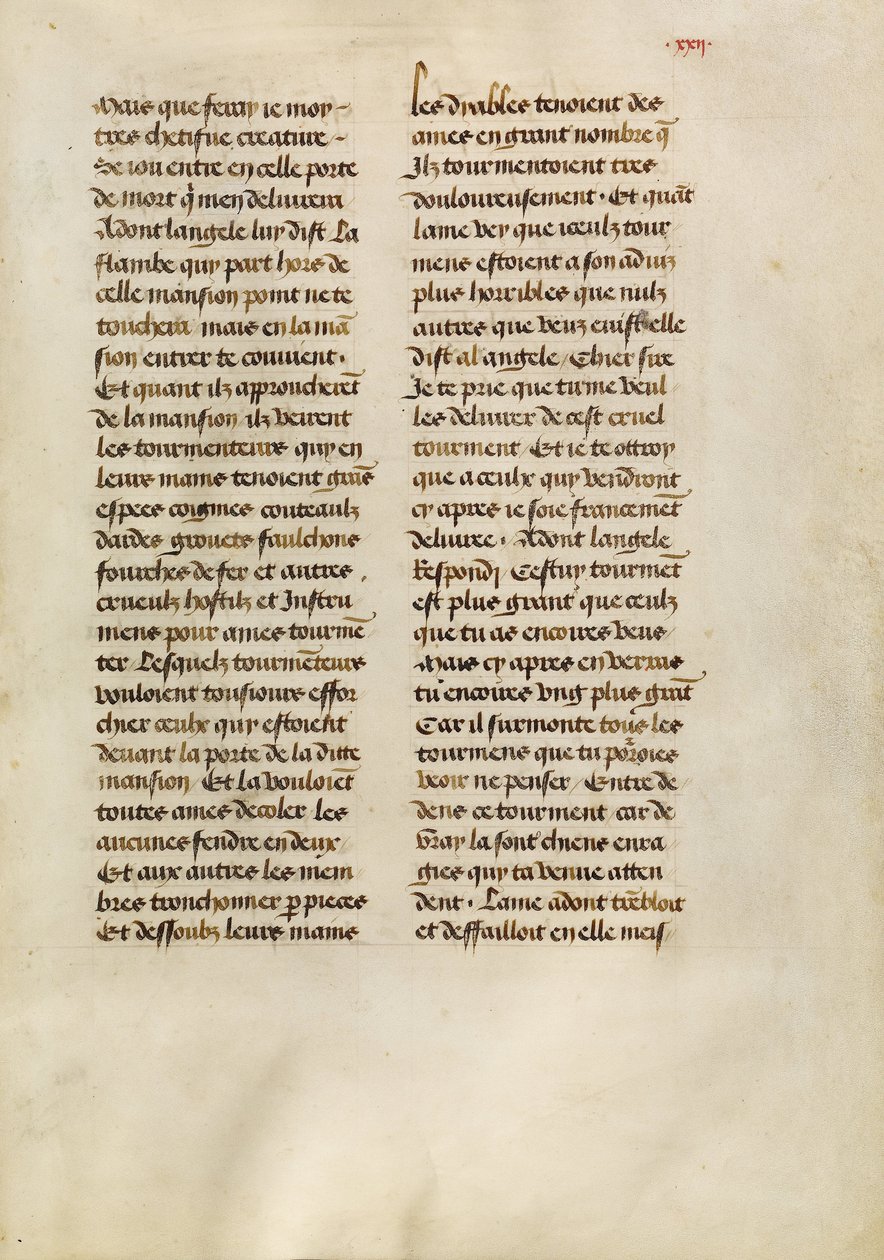 · xxij ·
Mais que feray ie moy
tres chetifue creature
Se iou entre en celle porte
de mort q̇ men deliurera
Adont langele luy dist La
flambe quy part hors de
celle mansion point ne te
touchera mais en la mā
sion entrer te conuient ·
Et quant ilz approucherēt
de la mansion ilz veirent
les tourmenteurs quy en
leurs mains tenoient grās
espees coignies couteaulz
dardes grouets faulchons
fourches de fer et autres
crueulz hostilz et Instru
mens pour ames tourmē
ter Lesquelz tourmēteurs
vouloient tousiours effor
chier ceulx quy estoient
deuant la porte de la ditte
mansion / Et la vouloiēt
toutes ames decoler les
aucunes fendre en deux /
Et aux autres les mem
bres tronchonner ꝑ pieces
Et dessoubz leurs mains
les dyables tenoient des
ames en grant nombre q̄
Ilz tourmentoient tres
douloureusement · Et quāt
lame vey que iceulz tour
mens estoient a son aduiz
plus horribles que nulz
autres que veuz euist elle
dist al angele / Chier sire
Je te prie que tu me veul
les deliurer de cest cruel
tourment / Et ie te ottroy
que a ceulx quy vendront
cy apres ie soie francemēt
deliure · Adont langele
Respondj / Cestuy tourmēt
est plus grant que ceulz
que tu as encoires veus
Mais cy apres en verras
tu encoires vng plus grāt
Car il surmonte tous les
tourmens que tu poroies
veoir ne penser / Entre de
dens ce tourment / car de
vray la sont chiens enra
gies quy ta venue atten
dent · Lame adont trēbloit
et deffailloit en elle meis